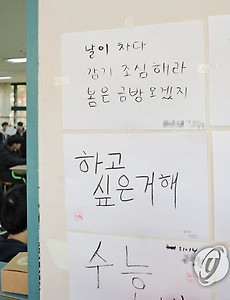 날이 차다
감기 조심해라
봄은 금방 오겠지
하고
싶은거해
수능